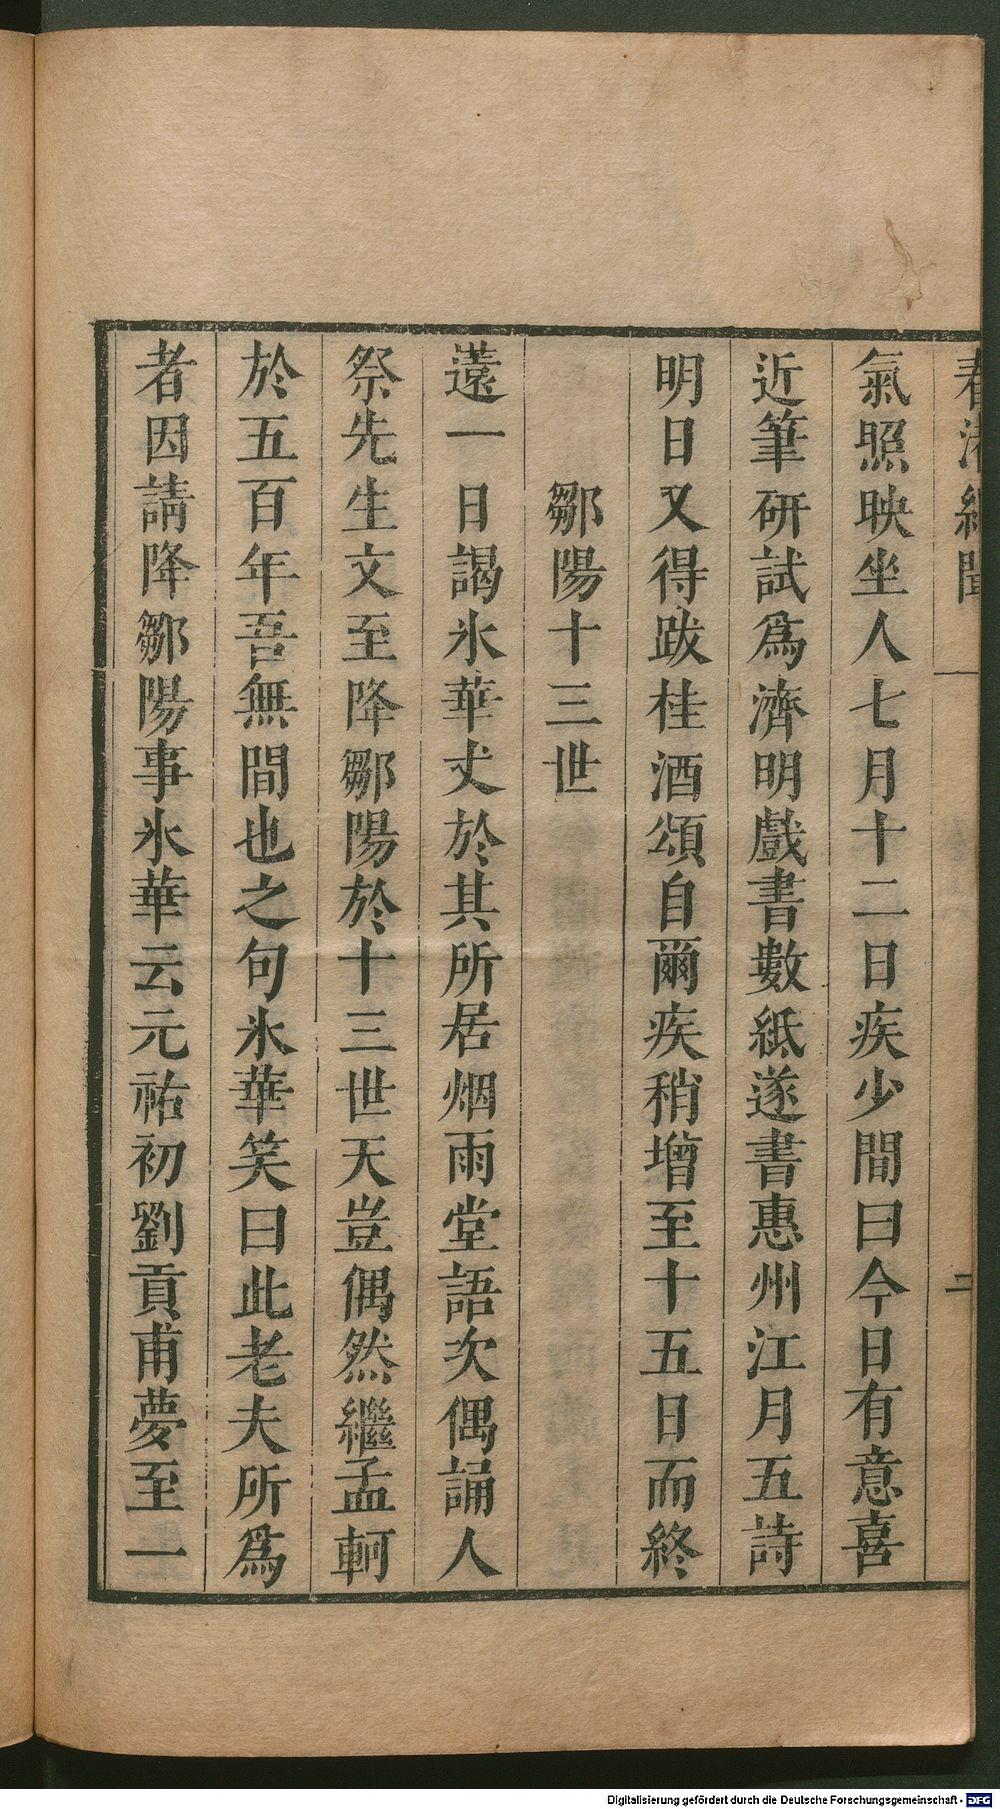 春渚紀聞 二
氣照映坐人七月十二日疾少間曰今日有意喜
近筆研試爲濟明戲書數紙遂書惠州江月五詩
明日又得跋桂酒頌自爾疾稍增至十五日而終
鄒陽十三世
薳一日謁氷華丈於其所居烟雨堂語次偶誦人
祭先生文至降鄒陽於十三世天豈偶然繼孟軻
於五百年吾無間也之句氷華笑曰此老夫所爲
者因請降鄒陽事氷華云元祐初劉貢甫夢至一
Digitalisierung gefördert durch die Deutsche Forschungsgemeinschaft - DFG